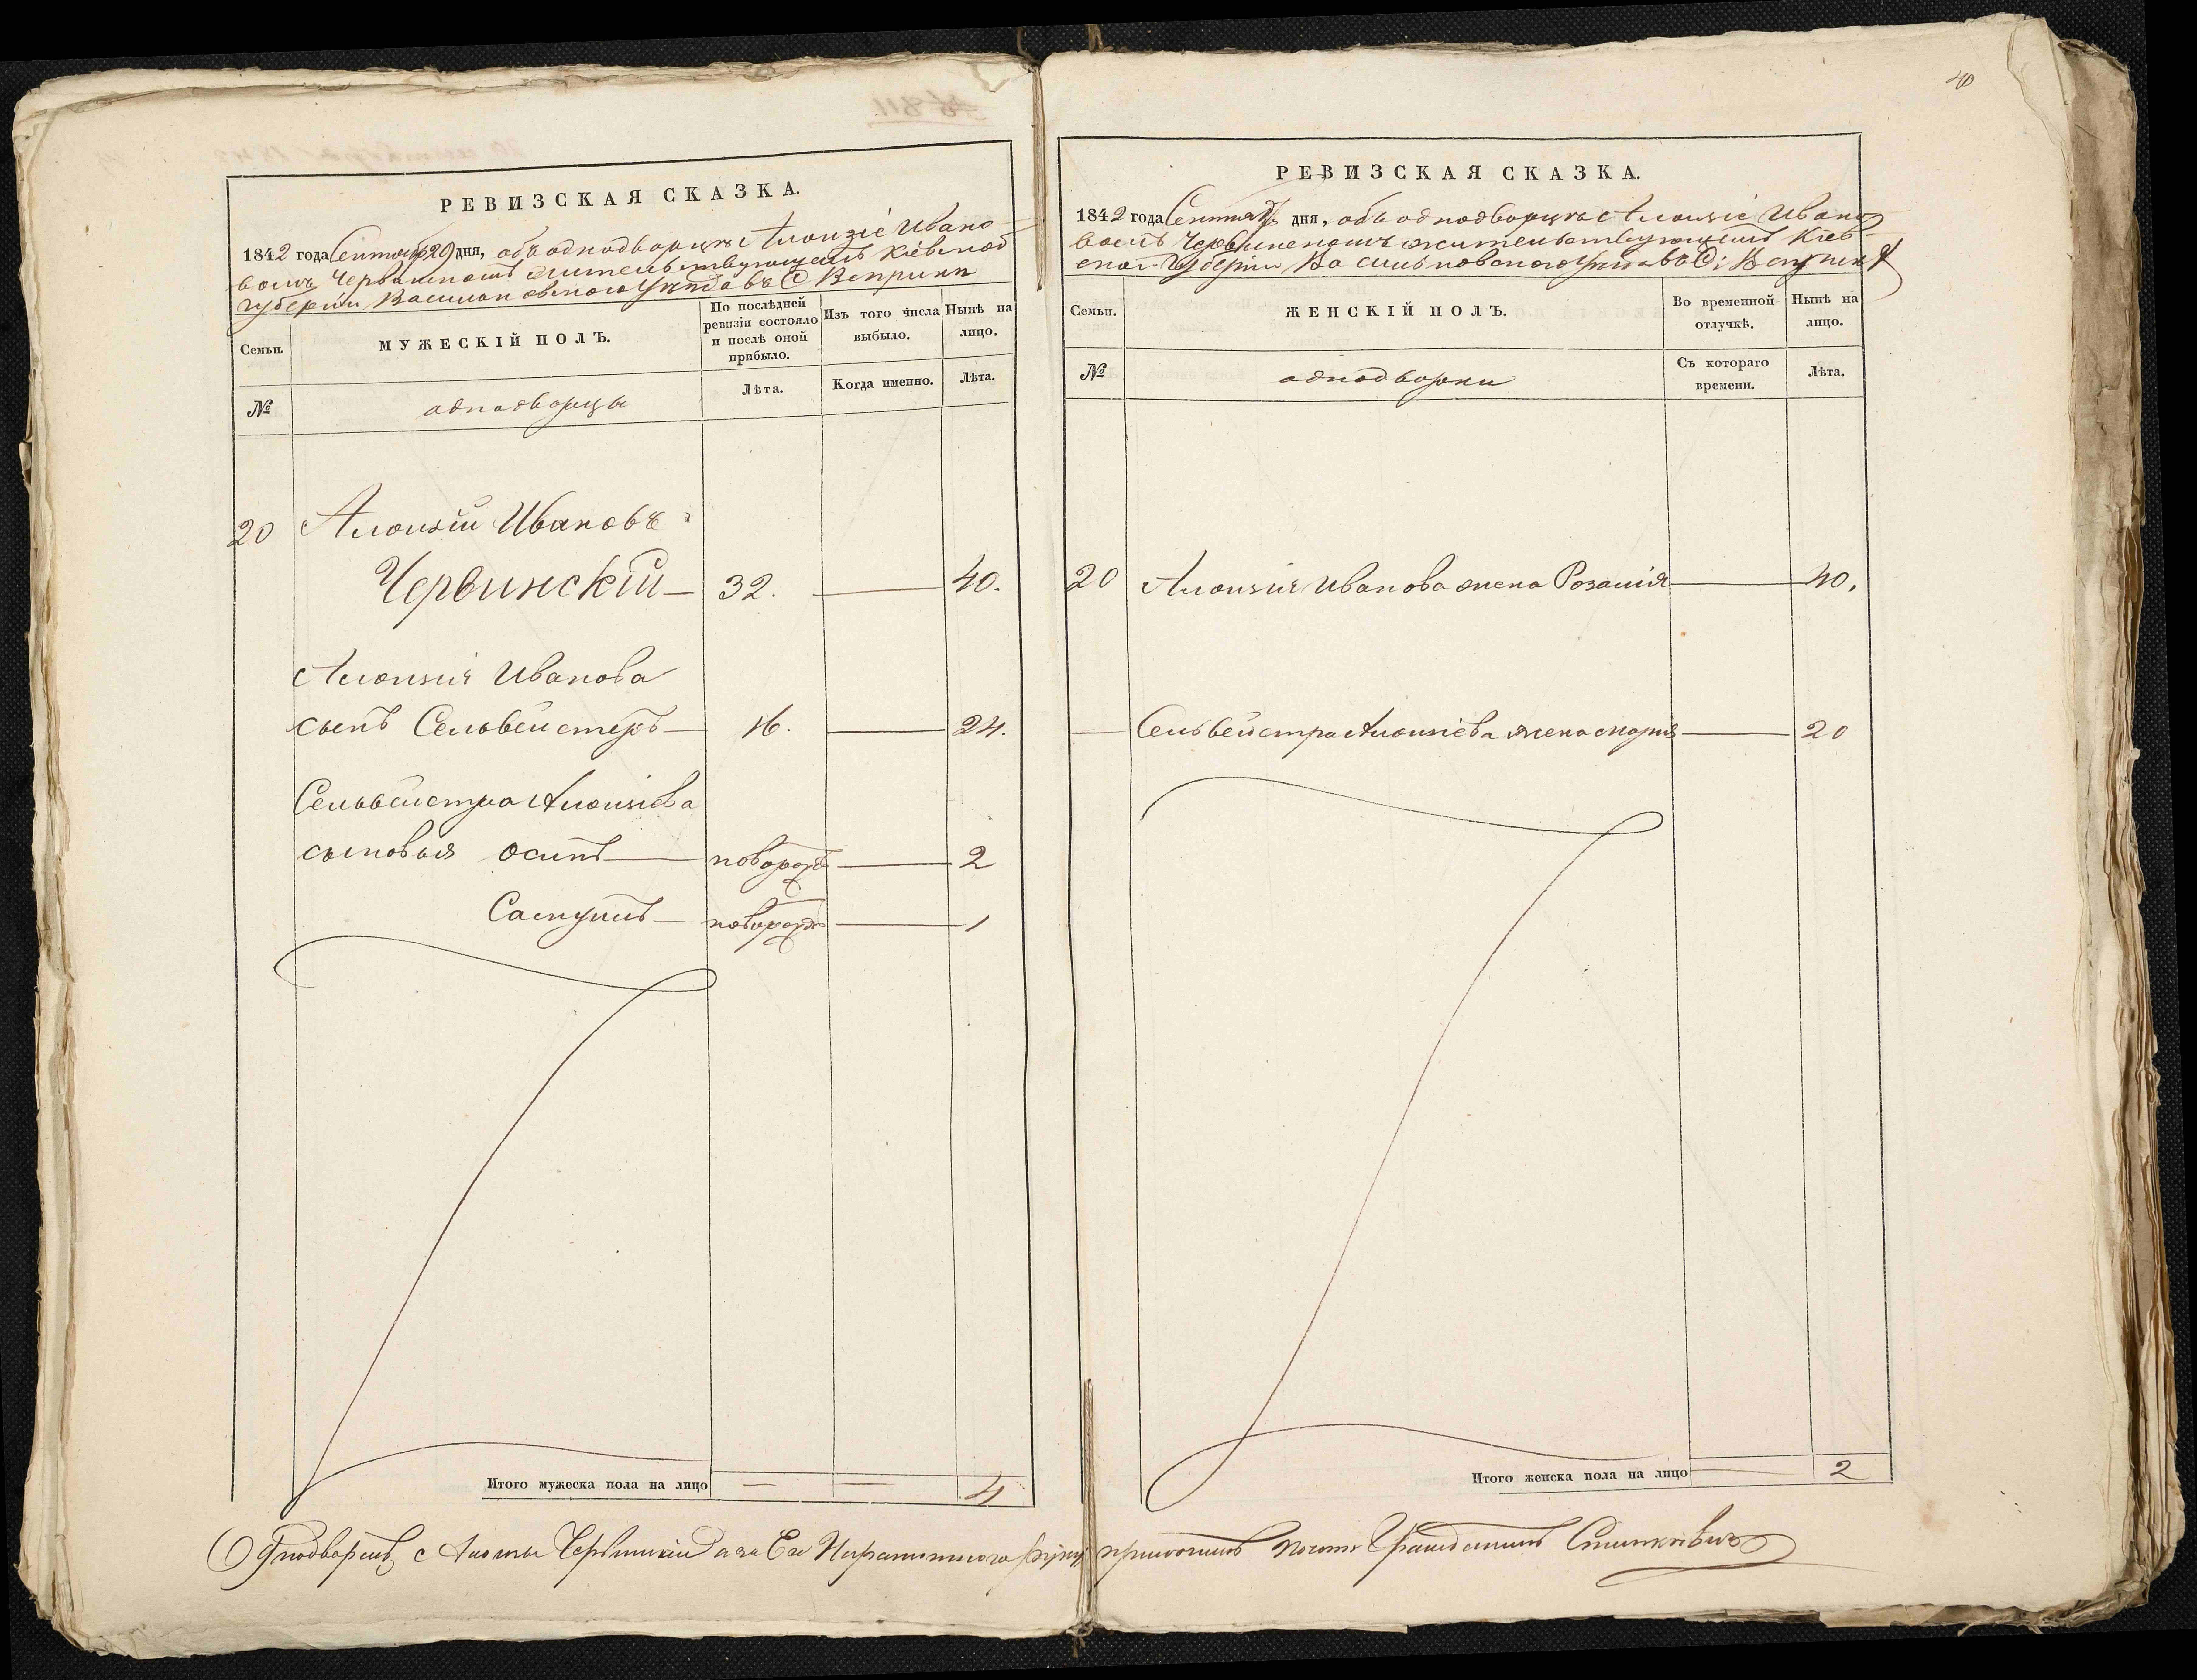 РЕВИЗСКАЯ СКАЗКА.
1842 года Сентября 20 дня, объ однодворцѣ Алоизіе Ивано-
вомъ Червинскомъ жительствующемъ Кіевской
губерніи Васильковскаго Уѣзда въ С. Веприкѣ
Семьи.
МУЖЕСКІЙ ПОЛЪ.
По послѣдней ревизіи состояло и послѣ оной прибыло.
Изъ того числа выбыло.
Нынѣ на лицо.
№
однодворцы
Лѣта.
Когда именно.
Лѣта.
20 Алоизій Ивановъ
Червинскій 32. 40.
Алоизія Иванова
сынъ Сельвейстеръ 16. 24.
Сельвейстра Алоизіева
сыновья Осипъ новорожд 2
новорожд 1
Итого мужеска пола на лицо 4
40
РЕВИЗСКАЯ СКАЗКА.
1842 года Сентяб дня, объ однодворцѣ Алоизіе Ивано-
вомъ Червинскомъ жительствующемъ Кіев-
ской Губерніи Васильковскаго Уѣзда въ С: Веприкѣ
Семьи.
ЖЕНСКІЙ ПОЛЪ.
Во временной отлучкѣ.
Нынѣ на лицо.
№
однодворки
Съ котораго времени.
Лѣта.
20 Алоизія Иванова жена Розалія 40.
Сельвейстра Алоизіева жена Марія 20
Итого женска пола на лицо 2
Однодворецъ Алоизы Червинскій а за Его Неграмотного руку приложилъ